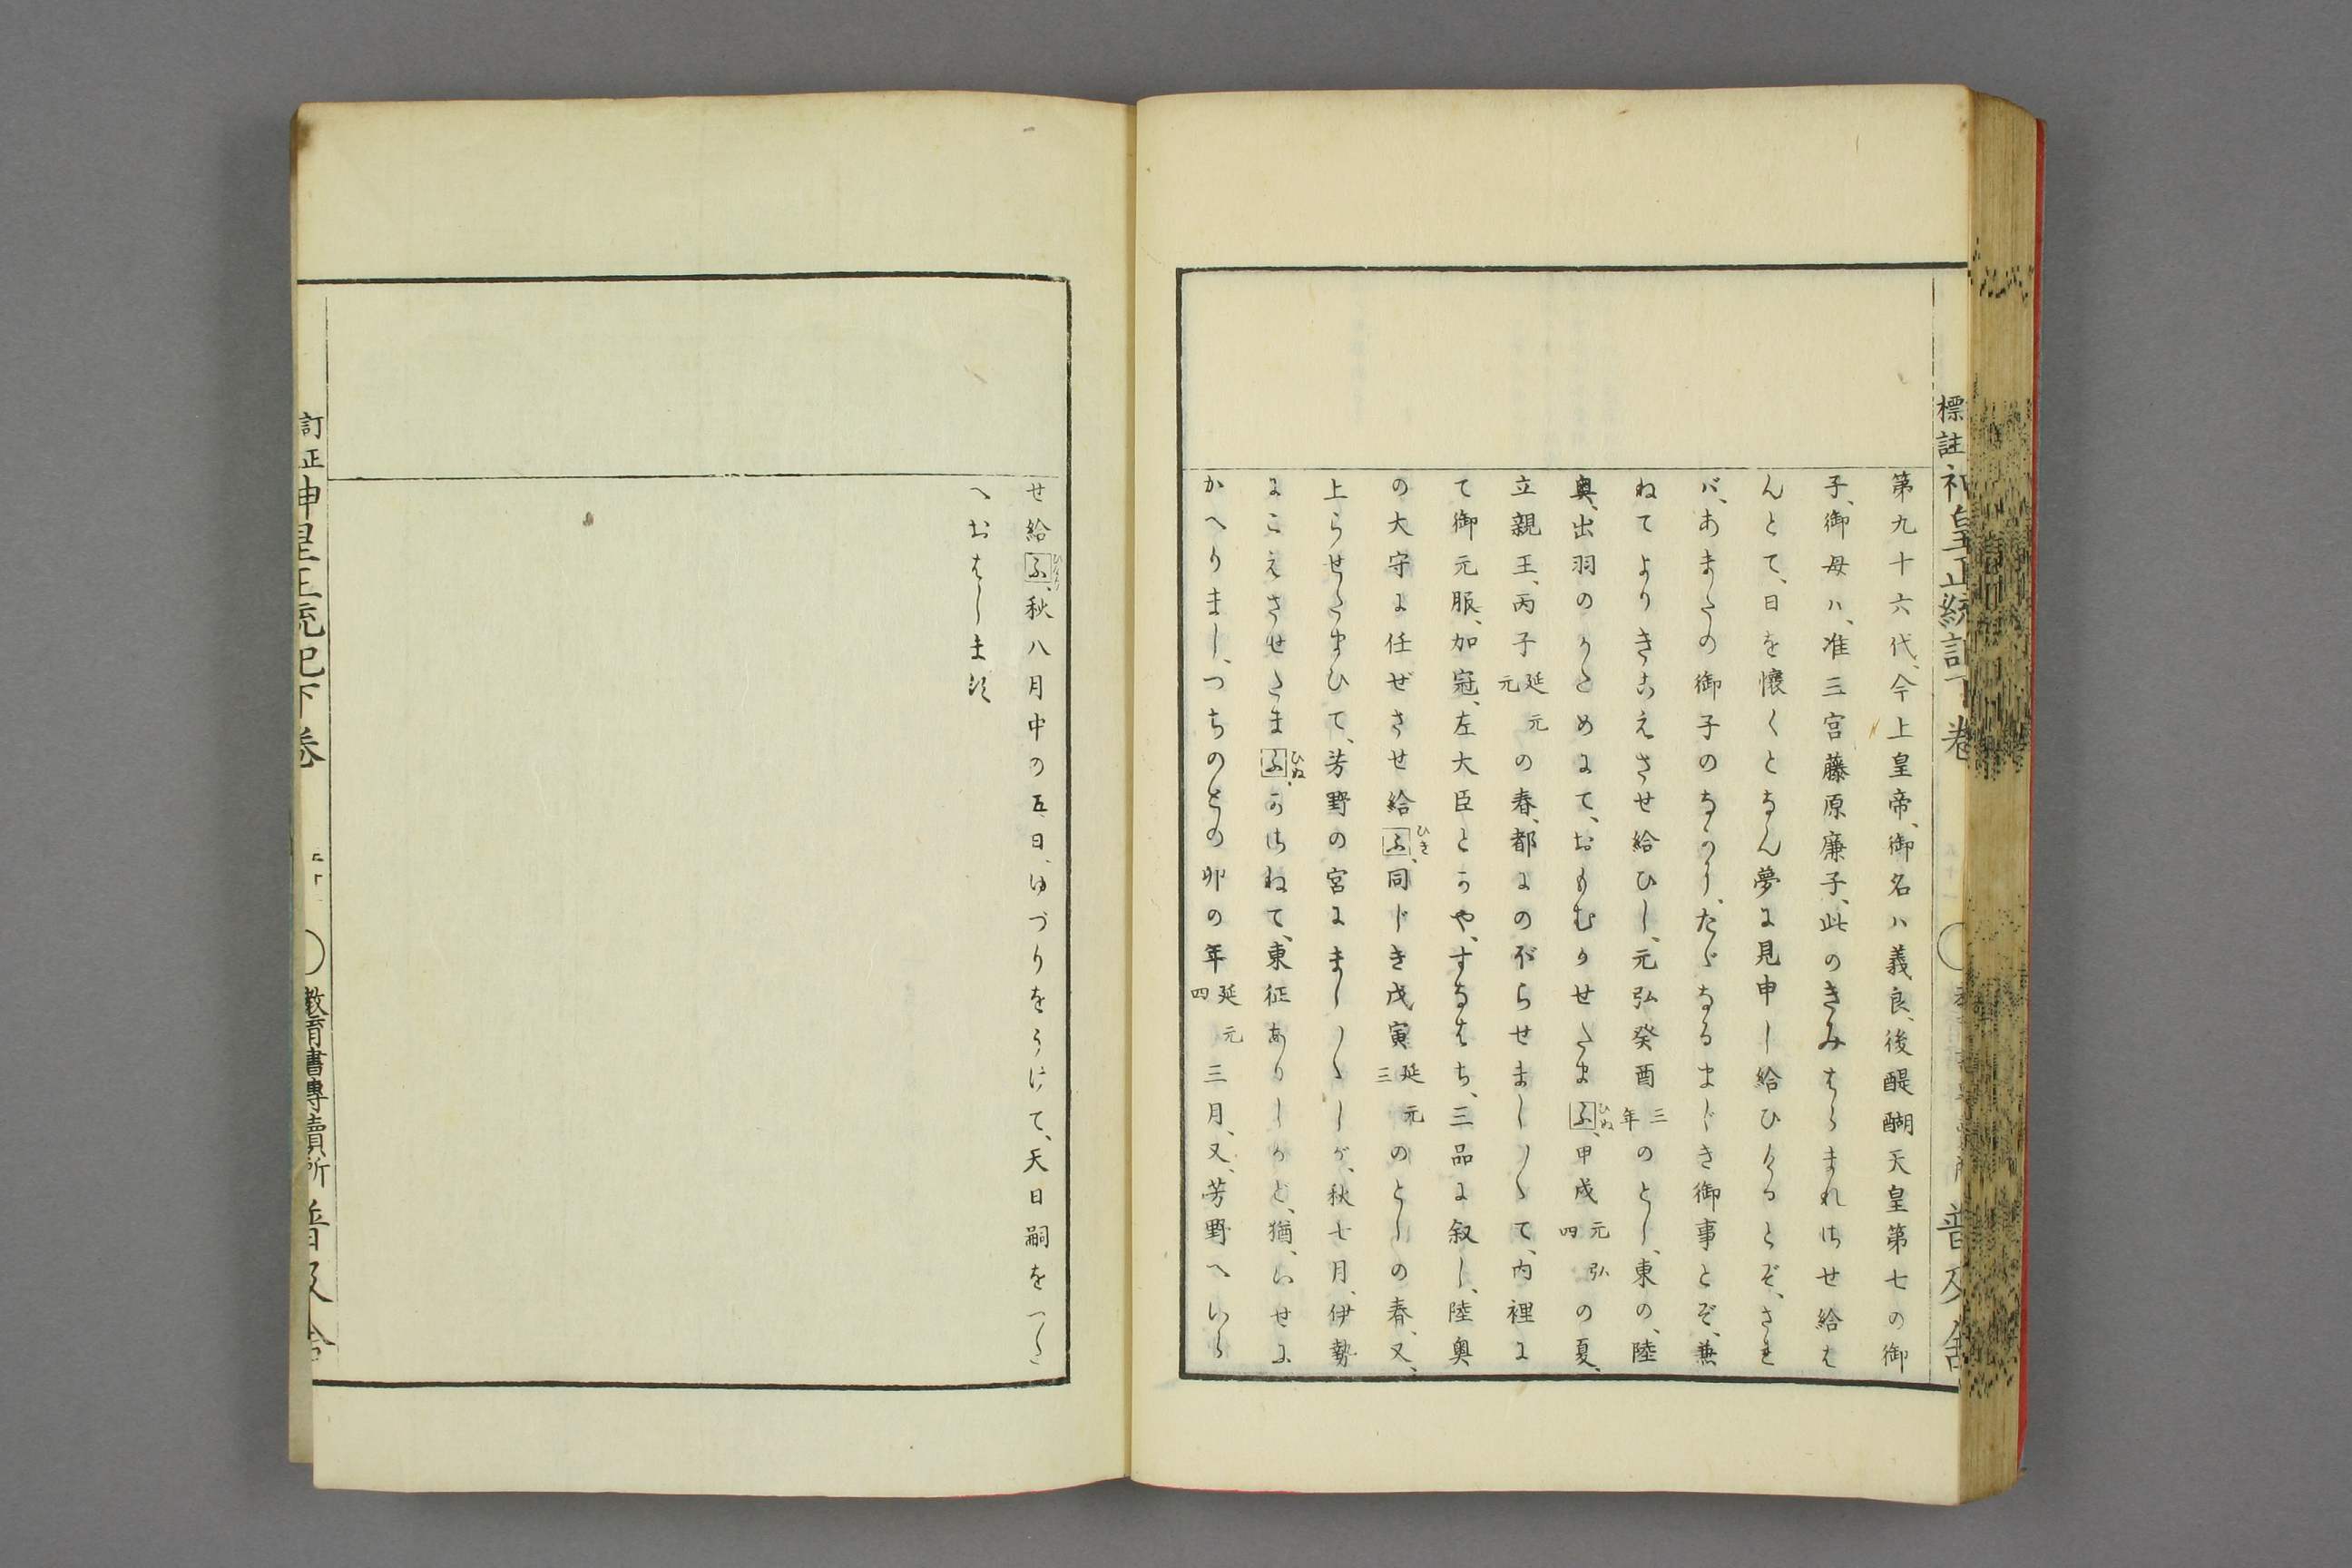 標註神皇正統記下卷
普及舎
第九十六代、今上皇帝、御名ハ義良、後醍醐天皇第七の御
子、御母ハ、准三宮藤原廉子、此のきみはらまれさせ給は
んとて、日を懐くとなん夢に見申し給ひけるとぞ、され
バ、あまたの御子のなかり、たゞなるまじき御事とぞ、兼
ねてよりきこえさせ給ひし、元弘癸酉三年のとし、東の、陸
奥、出羽のかためにて、おもむかせたまふひぬ、甲戌元弘四の夏、
立親王、丙子延元元の春、都にのぼらせましまして、内裡に
て御元服、加冠、左大臣とかや、すなはち、三品に叙し、陸奥
の大守に任ぜさせ給ふひき、同じき戊寅延元三のとしの春、又、
上らせたまひて、芳野の宮にましまししが、秋七月、伊勢
にこえさせたまふひぬ、かさねて、東征ありしかど、猶、いせに
かへりまし、つちのとの卯の年延元四三月、又、芳野へいら
せ給ふひけり、秋八月中の五日、ゆづりをうけて、天日嗣をつた
へおはします
訂正神皇正統記下卷
教育書專賣所 普及舎